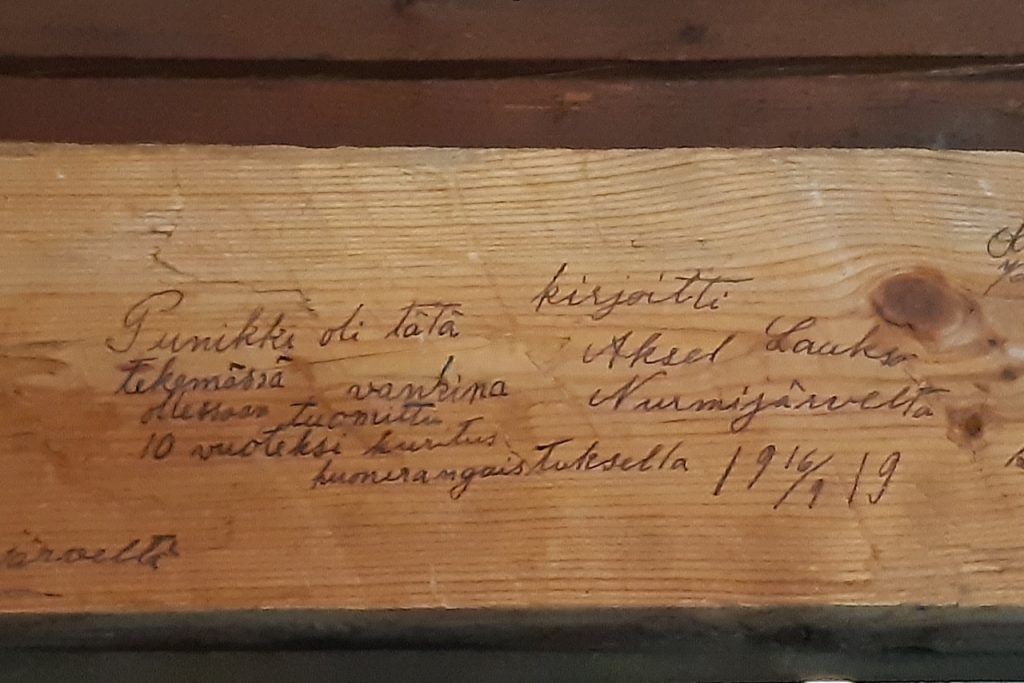 Punikki oli tätä
tekemässä vankina
ollessaan tuomittu
10 vuoteksi kuritus
huonerangaistuksella
kirjoitti
Aksel Laukso
Nurmijärveltä
19 16/9 19
ärveltä